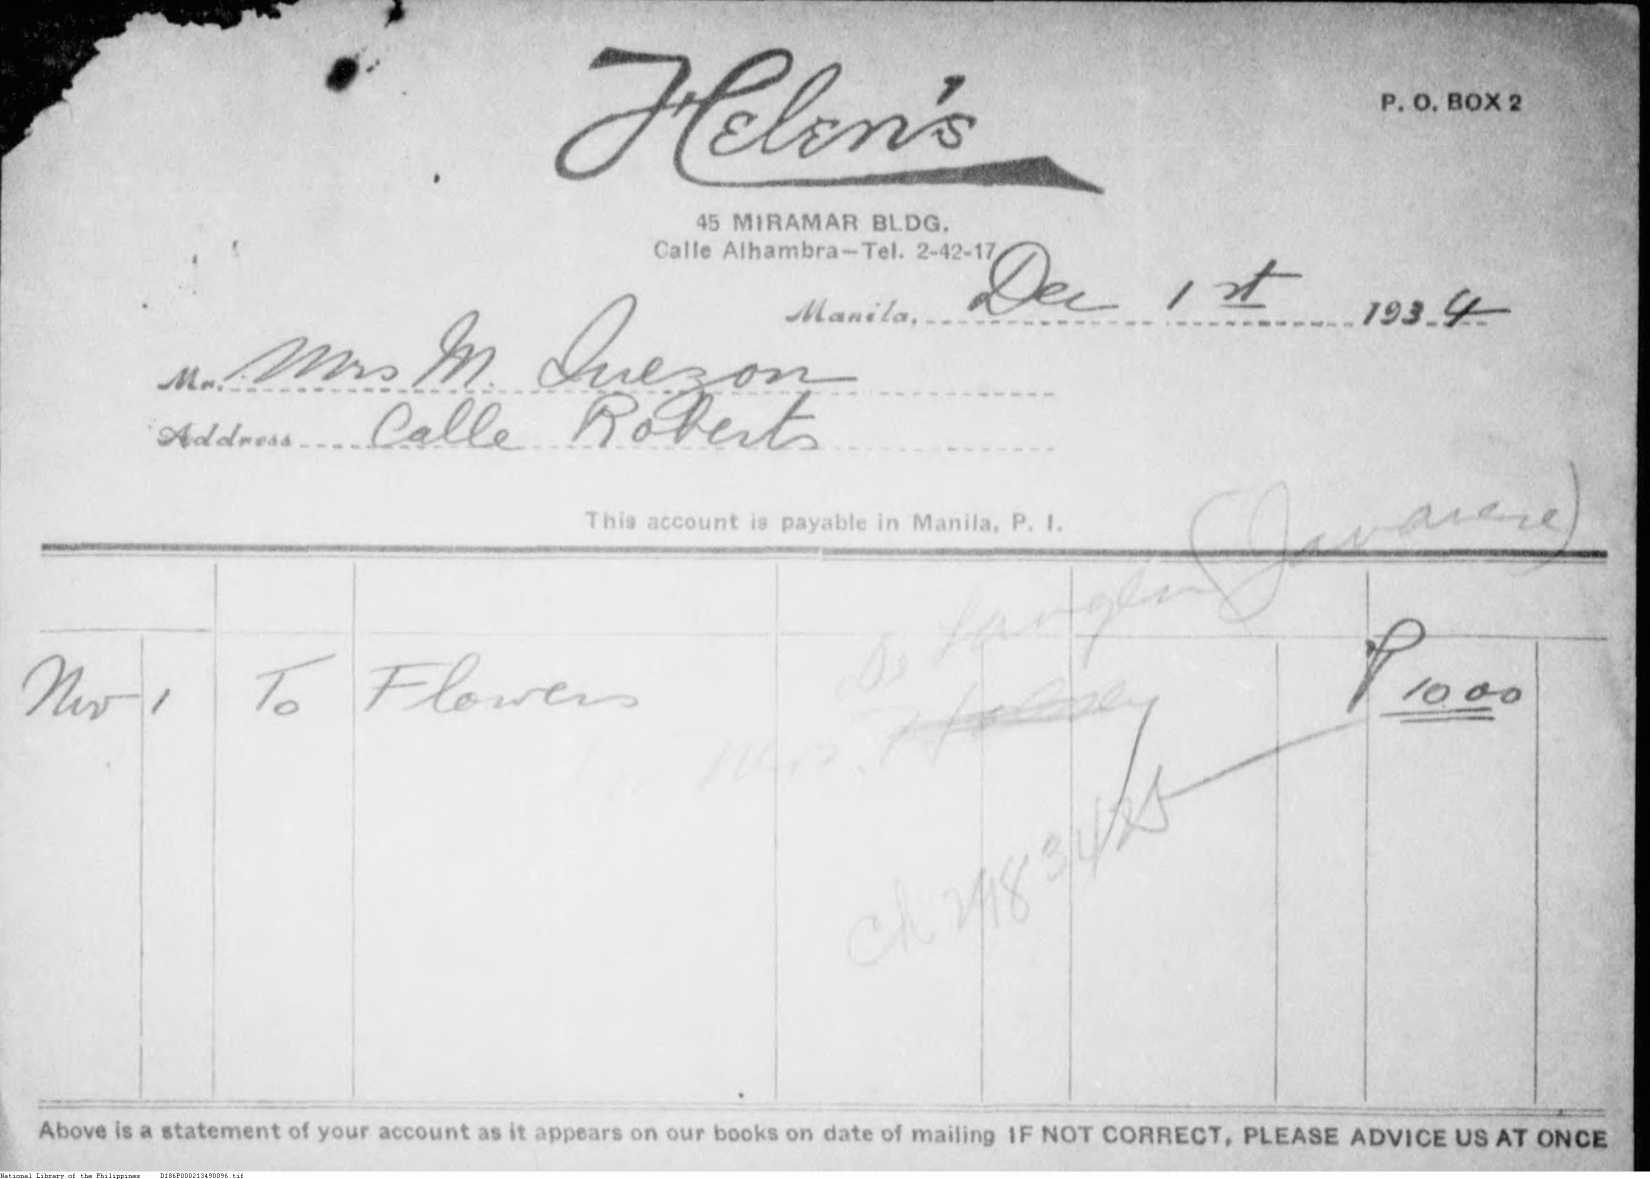 Helen's
P. O. BOX 2
45 MIRAMAR BLDG.
Calle Alhambra—Tel. 2-42-17
Manila, Dec 1st 1934
Mr. Mrs M. Quezon
Address Calle Roberts
This account is payable in Manila, P. I.
(Javanese)
Nov 1 To Flowers ₱10.00
Mrs.
Above is a statement of your account as it appears on our books on date of mailing IF NOT CORRECT, PLEASE ADVICE US AT ONCE
National Library of the Philippines D186P000213490096.tif